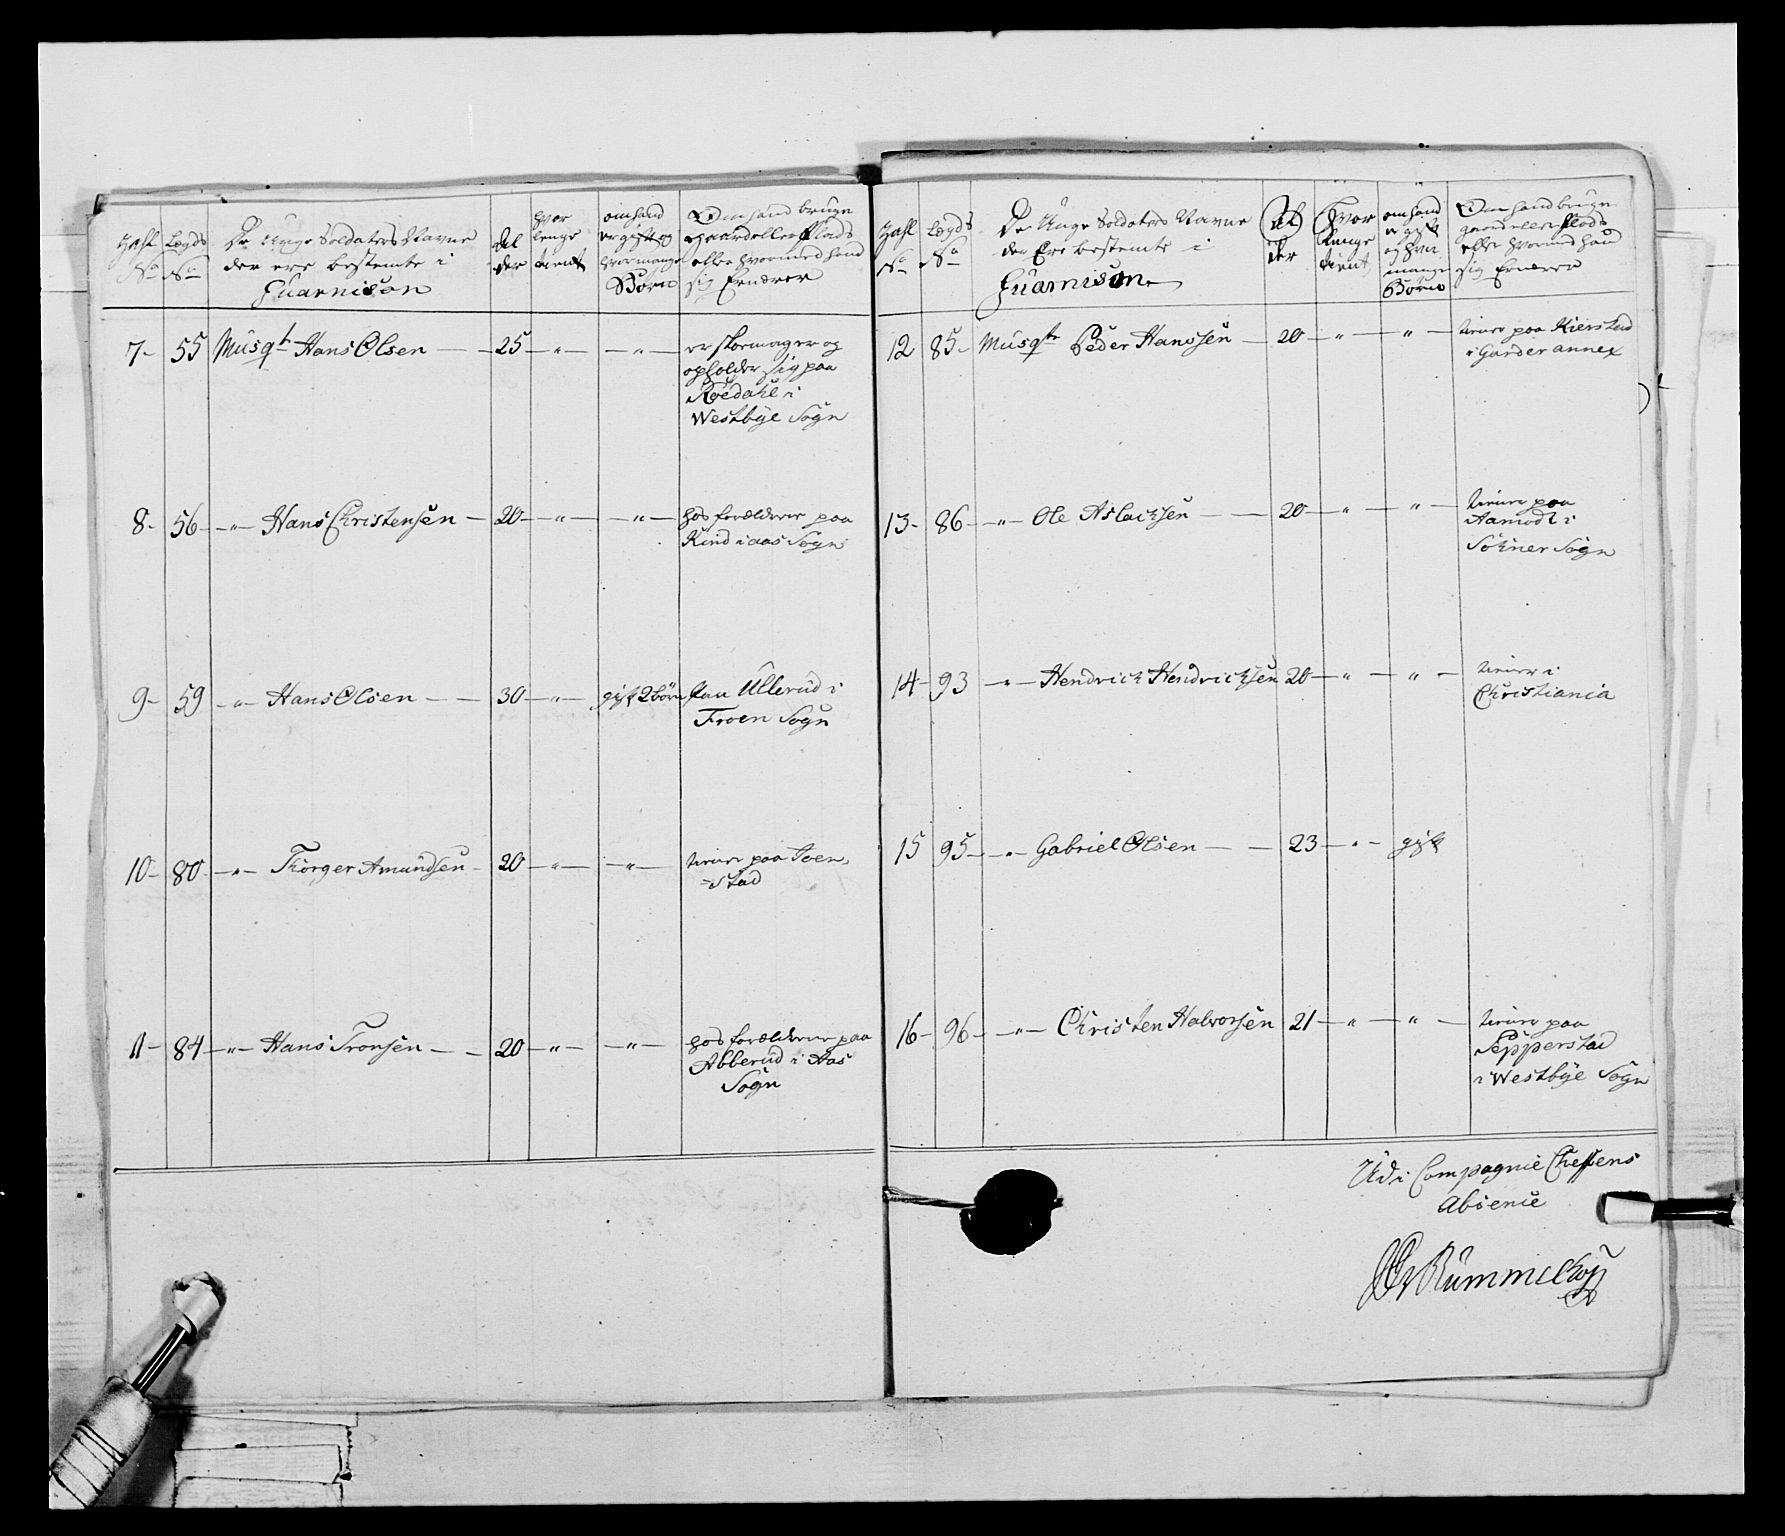 Zahl No
Legds No
De Unge Soldaters Navne
der ere bestemte i
Guarnison
Al
der
hvor
lenge
tient
om hand
er gift og
hvor mange
Børn
Om hand bruger
gaard eller Plads
eller hvormed hand
sig Ernærer
7- 55 Musqt Hans Olsen - 25 - " - - " - er skomager og
opholder sig paa
Roedahl i
Westbye Sogn
8- 56 - " - Hans Christensen - 20 - " - - " - hos forældrene paa
Kind i aas Sogn
9- 59 - " - Hans Olsen - - 30 - " - gift 2 børn paa Ullerud i
Froen Sogn
10- 80 - " - Torger Amundsen - 20 - " - - " - tiener paa Toen,
=stad
11- 84 - " - Hans Tronsen - - 20 - " - - " - hos forældrene paa
Abberud i Aas
Sogn
Zahl No
Legds No
De Unge Soldaters Navne
der Ere bestemte i
Guarnison
Al
der
Hvor
lenge
tient
om hand
er gift
og hvor
mange
Børn
Om hand bruger
gaard eller Plads
eller hvormed hand
sig Ernærer
12 85- Musqt Peder Hanssen - 20 - " - " - tiener paa Kierstad
i Garder annex
13- 86 - " - Ole Aslachsen - - 20 - " - " - tiener paa
Aamodt i
Sohner Sogn
14- 93 - " - Hendrich Hendrichsen 20 - " - " - tiener i
Christiania
15 95 - " - Gabriel Olsen - - 23 - " - gift
16- 96 - " - Christen Halvorsen 21 - " - " - tiener paa
Sepperstad
i Westbye Sogn
Udi Compagnie Cheffens
Absence
Rummelhoff